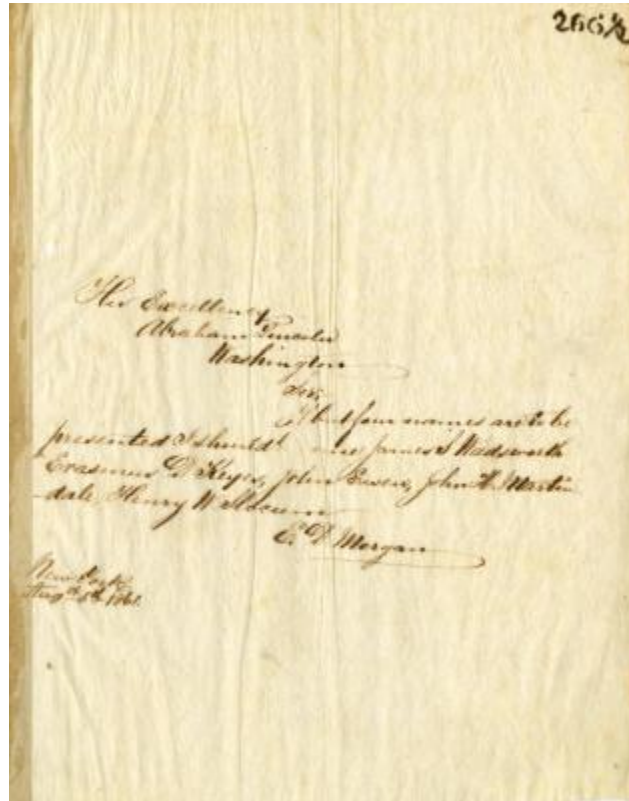 266½
His Excellency
Abraham Lincoln
Washington
Sir,
If but four names are to be
presented I should James S Wadsworth
Erasmus D Keyes, John Ewen, John H. Martin
-dale, Henry W Slocum
E. D. Morgan
New York
Augt 1861.